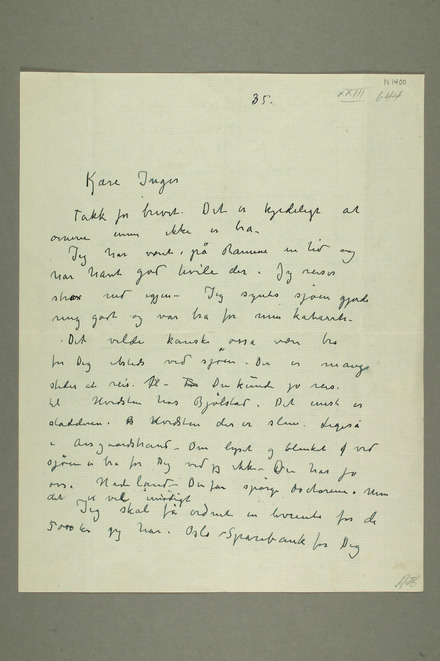 N 1400
XXIII
644
35.
Kære Inger
Takk for brevet. Det er kjedeligt at
ennu ikke er bra.
Jeg har været på Ramme en tid og
har havt god hvile der. Jeg reiser
strax ned igjen – Jeg synes sjøen gjorde
mig godt og var bra for min katarrh –
Det vilde kanske også være bra
for Dig et sted ved sjøen. Der er mange
steder at reise til – Du kunde jo reise
til Hvidsten hos Bjølstad. Det eneste er
kloakken. Hvidsten der er slem. Ligeså
i Aasgaardstrand – Om lyset og blinket ved
sjøen er bra for Dig ved jeg ikke – Du har jo
også Hadeland – Du får spørge doktoren. Men
det er vel umuligt
Jeg skal få ordnet en for de
5000 kr jeg har i Oslo Sparebank for Dig